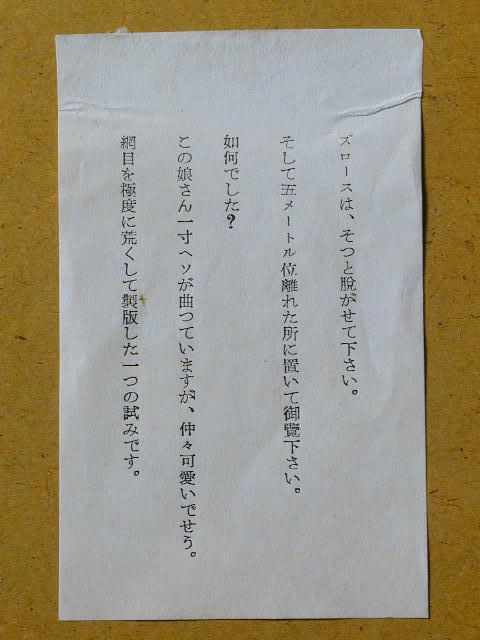 ズロースは、そつと脱がせて下さい。
そして五メートル位離れた所に置いて御覽下さい。
如何でした?
この娘さん一寸ヘソが曲つていますが、仲々可愛いでせう。
網目を極度に荒くして製版した一つの試みです。